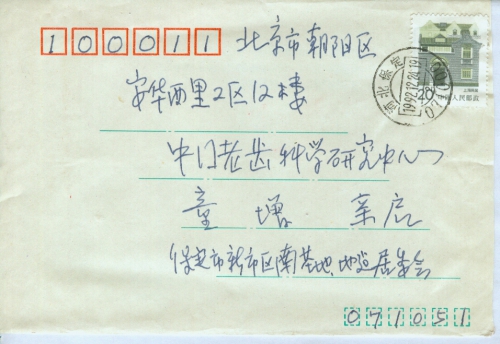 100011 北京市朝阳区
安华西里2区12楼
中日老龄科学研究中心
童增 亲启
保定市新市区南基地、地运居委会
071051
河北保定
1992.12.24.19
20
中国人民邮政